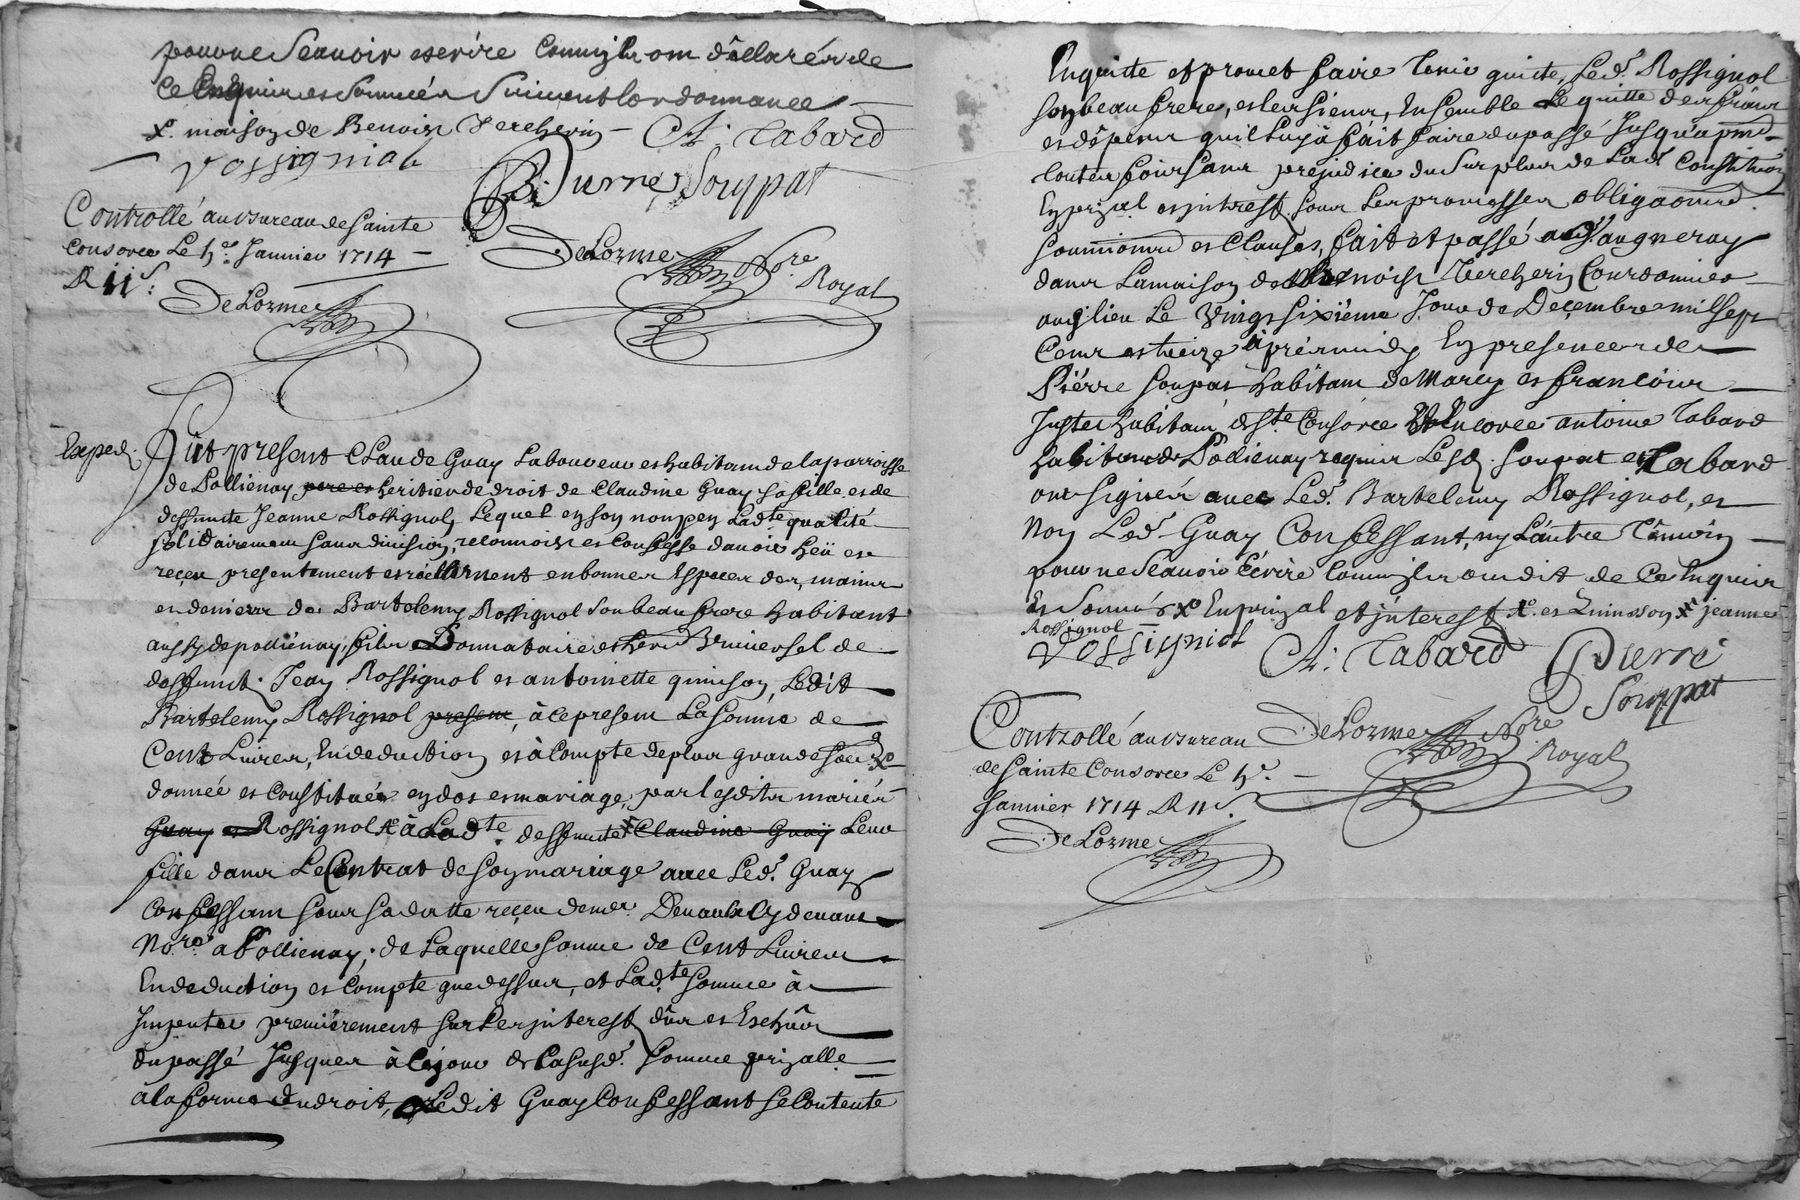 pour ne Scauoir escrire Comm'ils ont déllarés de
Ce Enquis et Sommés Suiuant Lordonnance
x.° maison de Benoist Vercherin — A: Tabard
rossignial Pierre Souppat
Controllé au bureau de Sainte
Consorce Le 5.e Januier 1714 —
R 11 s:
DeLorme No.re Royal
DeLorme
Exped. Fût present Claude Guay Laboureur et habitant de la parroisse
de Pollienay pere et heritier de droit de Claudine Guay Sa fille et de
deffunte Jeanne Rossignol, Lequel en son nom et en Lad.te qualité
solidairement sans diuision, reconnoist et Confesse dauoir heü et
reçeu presentement et réellement en bonnes Especes des mains
et deniers de Bartelemy Rossignol Son beau frere habitant
aussy de pollienay, fils Donnataire et heri.er Vniuersel de
deffunct Jean Rossignol et antoinette quinson, Ledit
Bartelemy Rossignol present, à ce present La Somme de
Cent Liures, En deduction et à Compte de plus grande Som.e x.°
donnée et Constituée en dot et mariage, par lesdits mariés
Guay et Rossignol x.° à Lad.te deffunte x Claudine Guay Leur
fille dans Le Contrat de Son mariage auec Led.t Guay
Confessant sous sa datte reçeu de me.r Denaux Cy deuant
No.re a Pollienay; de Laquelle Somme de Cent Liures
En deduction et Compte que dessus, et Lad.te Somme à
Imputer premiérement sur Les jnterest dûs et Eschûs
du passé Jusques à Ce jour de La susd.e Somme prin.alle
a la forme du droit, Ledit Guay Confessant se Contente
Enquitte et promet faire Tenir quitte, Led.t Rossignol
Son beau frere, et les siens, Ensemble Le quitte des frâis
et dépens quil Luy à fâit faire du passé Jusqu'a p.nt
toutes fois sans prejudice du Surplus de Lad.e Constitu.on
En prin.al et jnterest sous Les promesses obliga.ons
Soumi.ons et Clauses, fait et passé aud.t Vaugneray
dans La maison de Benoist Vercherin Courdonnier
aud.t lieu Le Vingt sixiéme Jour de Decembre mil Sept
Cent et treize âprés midy En presence de
Piérre Soupat habitant de Marcy et françois
Juste habitant de S.te Consorce Et Encore antoine Tabard
habitant de Pollienay requis Lesd. Soupat et Tabard
ont signés auec Led.t Bartelemy Rossignol, et
Non Led.t Guay Confessant, ny L'autre Témoin
pour ne Scauoir Ecrire Comm'ils ont dit de Ce Enquis
Et Sommés x.° En prin.al et jnterest x.° et Quinson x.° jeanne
Rossignol
rossignial A: Tabard Pierre
Souppat
Controllé au bureau DeLorme No.re
de Sainte Consorce Le 5.e Royal
Januier 1714 R 11 s.
DeLorme